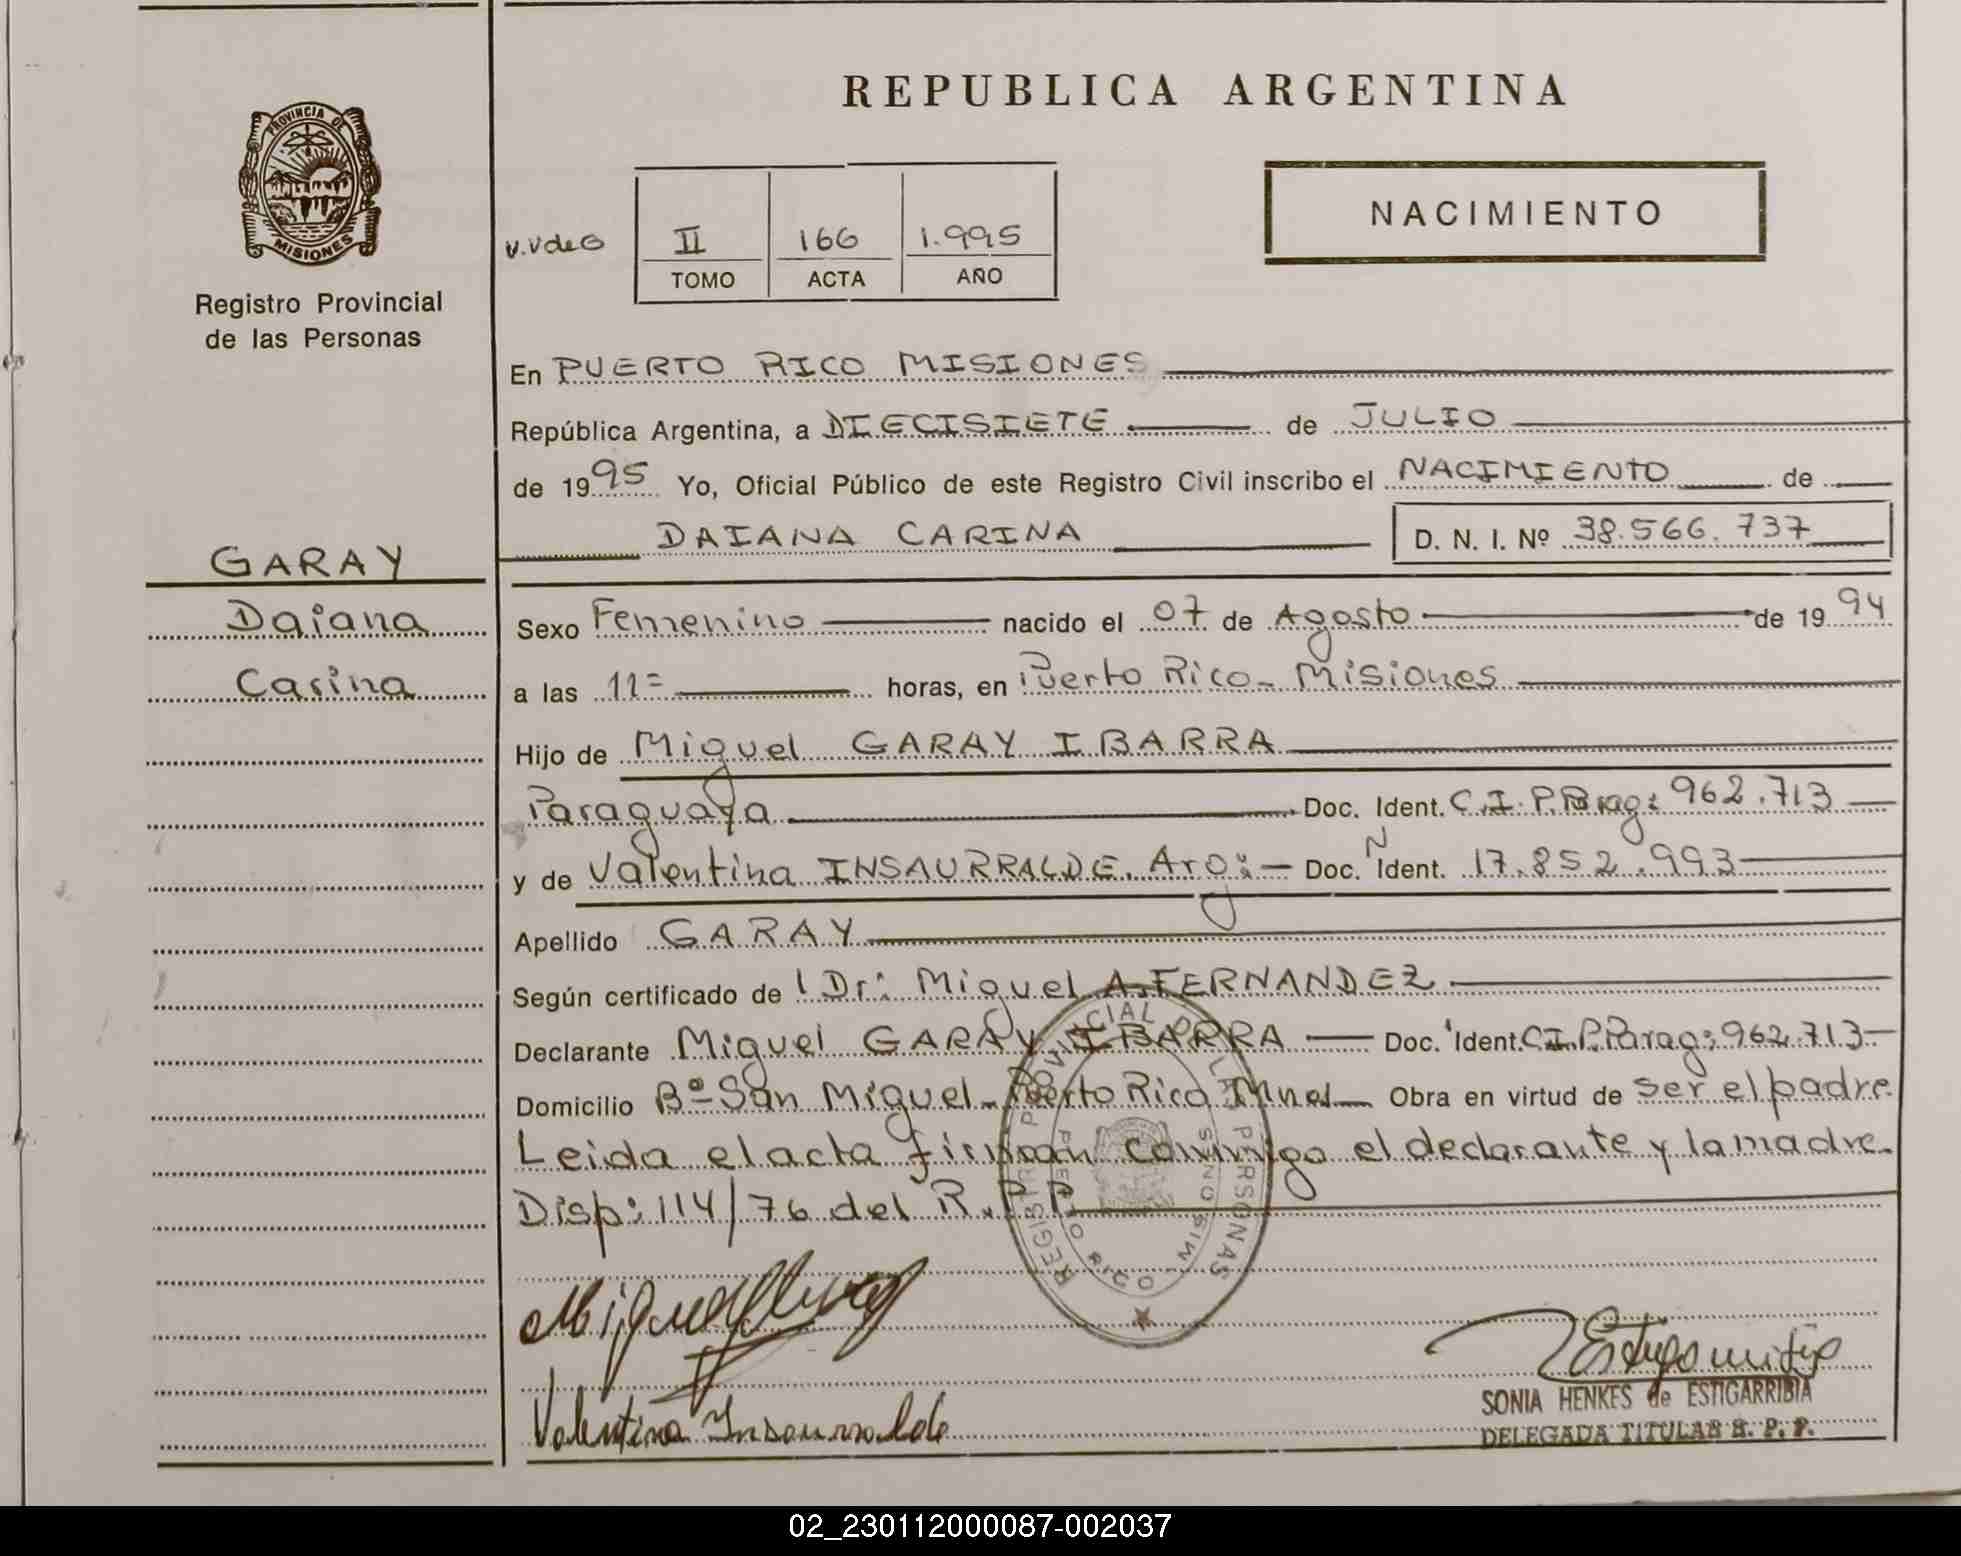 REPUBLICA ARGENTINA
PROVINCIA DE
MISIONES
Registro Provincial
de las Personas
V.V de G
II 166 1.995
TOMO ACTA AÑO
NACIMIENTO
En PUERTO RICO MISIONES
República Argentina, a DIECISIETE de JULIO
de 1995 Yo, Oficial Público de este Registro Civil inscribo el NACIMIENTO de
DAIANA CARINA D. N. I. Nº 38.566.737
GARAY
Daiana
Carina
Sexo Femenino nacido el 07 de Agosto de 1994
a las 11= horas, en Puerto Rico - Misiones
Hijo de Miguel GARAY IBARRA
Paraguaya Doc. Ident. C.I.P.Parag: 962.713
y de Valentina INSAURRALDE. Arg: Doc. N Ident. 17.852.993
Apellido GARAY
Según certificado de l Dr: Miguel A.FERNANDEZ
Declarante Miguel GARAY IBARRA Doc. Ident. C.I.P.Parag: 962.713
Domicilio Bº San Miguel - Puerto Rico Mnes Obra en virtud de ser el padre.
Leida el acta firman conmigo el declarante y la madre.
Disp: 114/76 del R.P.P.
REGISTRO PROVINCIAL DE LAS PERSONAS
PUERTO RICO MISIONES
Valentina Insaurralde
SONIA HENKES de ESTIGARRIBIA
DELEGADA TITULAR R. P. P.
02_230112000087-002037